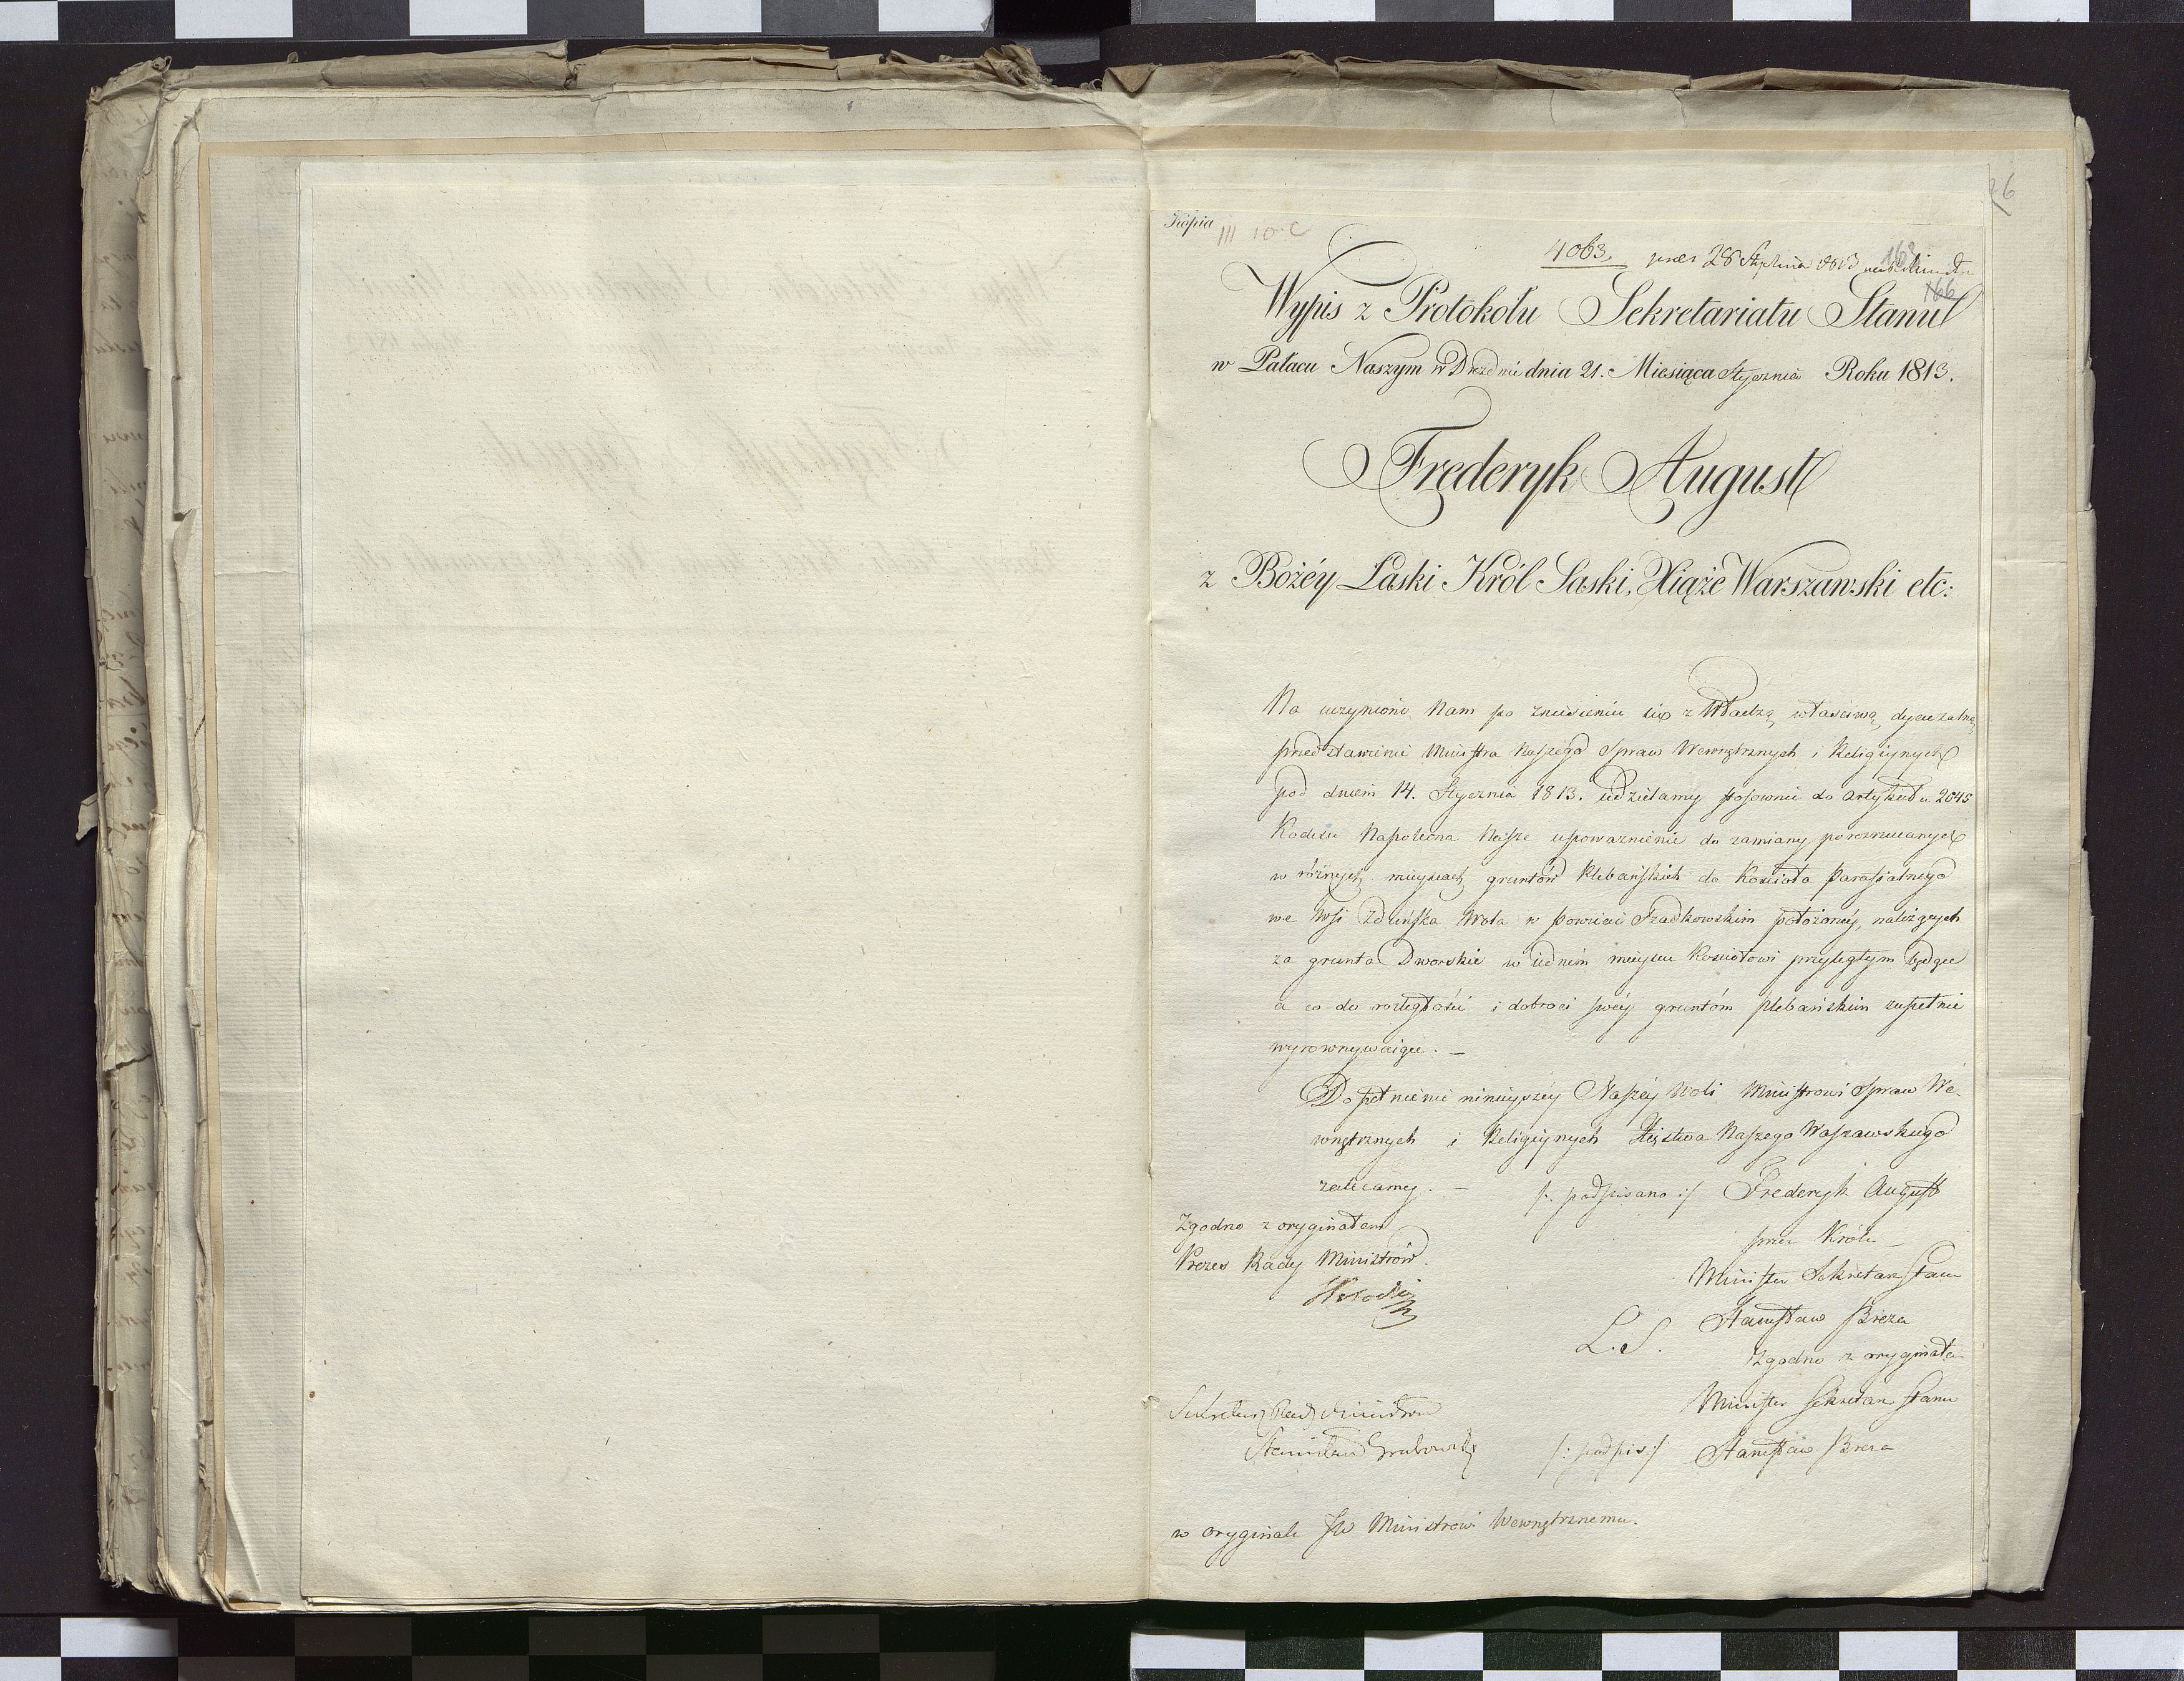 26
Kopia III 10 C
4063. prez 28 Stycznia 1813
166
Wypis z Protokołu Sekretariatu Stanu
w Pałacu Naszym w Dreznie dnia 21. Miesiąca Stycznia Roku 1813.
Frederyk August
z Bożéy Łaski Król Saski, Xiąże Warszawski etc:
Na uczynione Nam po zniesieniu się z Władzą właściwą dyecezalną
przedstawienie Ministra Naszego Spraw Wewnętrznych i Religiynych
pod dniem 14. Stycznia 1813. udzielamy stosownie do artykułu 2045
Kodexu Napoleona Nasze upoważnienie do zamiany porozrzucanych
w różnych mieyscach gruntów Plebańskich do Kościoła Parafialnego
we Wsi Zduńska Wola w Powiecie Szadkowskim położoney, należących
za grunta Dworskie w iednem mieyscu Kościołowi przyległym będące
a co do rozległości i dobroci swéy gruntóm plebańskim zupełnie
wyrownywaiące. —
Dopełnienie ninieyszéy Naszéy Woli Ministrowi Spraw We-
wnętrznych i Religiynych Xięstwa Naszego Warszawskiego
zalecamy. — /: podpisano :/ Frederyk August
Zgodno z oryginałem
przez Króla
Prezes Rady Ministrów
Minister Sekretarz Stanu
L. S. Stanisław Breza
Zgodno z oryginałem
Sekretarz Rady Ministrów
Minister Sekretarz Stanu
Stanisław Grabowski /: podpis :/ Stanisław Breza
w oryginale JW Ministrowi Wewnętrznemu.